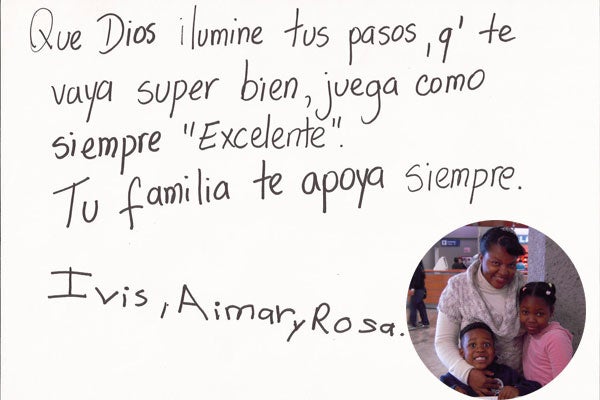 Que Dios ilumine tus pasos, q' te
vaya super bien, juega como
siempre "Excelente".
Tu familia te apoya siempre.
Ivis, Aimar y Rosa.